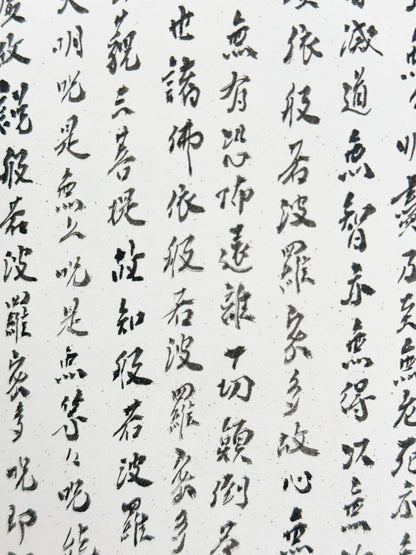 盡乃至無老死亦無
滅道無智亦無得以無
依般若波羅蜜多故心無
無有恐怖遠離一切顛倒
世諸佛依般若波羅蜜多
藐三菩提故知般若波羅
大明呪是無上呪是無等々呪能
故說般若波羅蜜多呪即